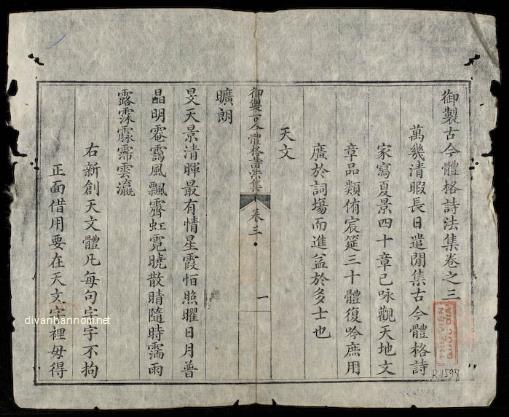 御製古今體格詩法集卷之三
萬幾清暇長日遣閒集古今體格詩
家寫夏景四十章已咏觀天地文
章品類侑宸筵三十體復吟庶用
廣於詞場而進益於多士也
天文
御製古今體格詩法集
卷三
一
曠朗
旻天景清暉最有情星霞怕照曜日月普
晶明靄風飄霽虹霓曉散晴隨時霑雨
露霂雲瀛
右新創天文體凡每句字字不拘
正面借用要在天文字裡毋得
divanhannom.net
divanhannom.net
R.1597